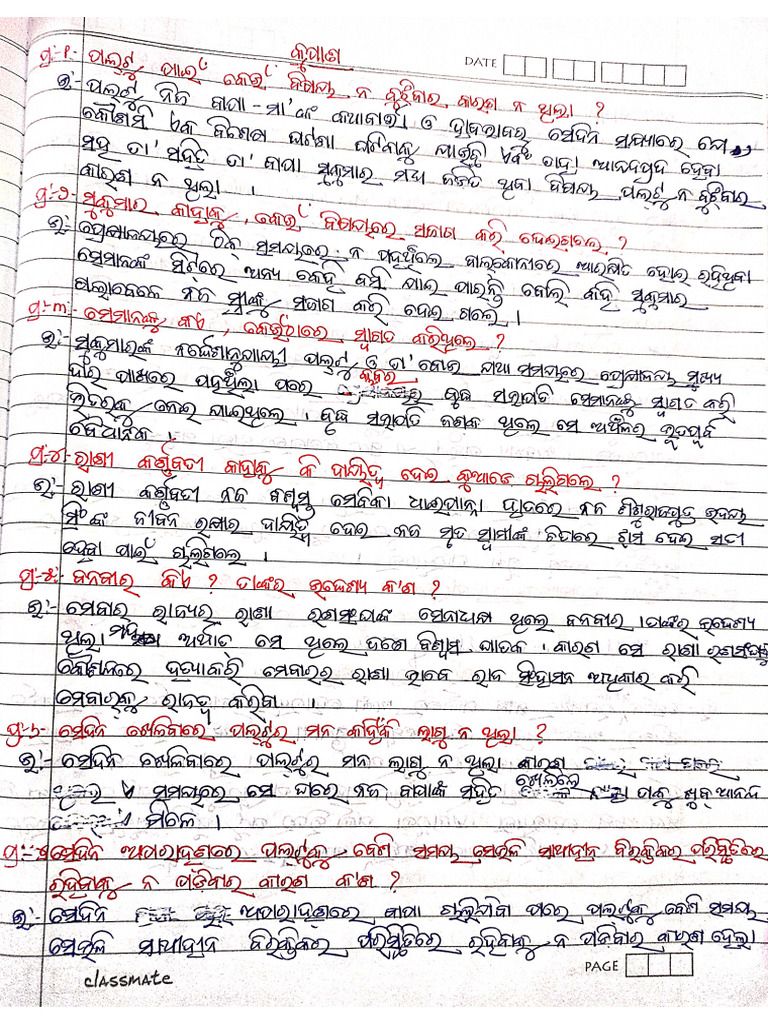 କୁପାଣ
DATE
ପ୍ର:-୧- ପଲ୍‌ଟୁ ପାଇଁ କେଉଁ ବିଷୟ ନ ବୁଝିବାର କାରଣ ନ ଥିଲା ?
ଉ:- ପଲ୍‌ଟୁ ନିଜ ବାପା-ମା'ଙ୍କ କଥାବାର୍ତ୍ତା ଓ ହାବଭାବରୁ ସେଦିନ ସନ୍ଧ୍ୟାରେ ଯେ
କୌଣସି ଏକ ବିଶେଷ ଘଟଣା ଘଟିବାକୁ ଯାଉଛି ଏବଂ ତାହା ଆନନ୍ଦପ୍ରଦ ହେବା
ସହ ତା' ସହିତ ତା' ବାପା ସୁକୁମାର ମଧ୍ୟ ଜଡିତ ଥିବା ବିଷୟ ପଲ୍‌ଟୁ ନ ବୁଝିବାର
କାରଣ ନ ଥିଲା ।
ପ୍ର:-୨- ସୁକୁମାର କାହାକୁ, କେଉଁ ବିଷୟରେ ସଜାଗ କରି ଦେଇଗଲେ ?
ଉ:- ପ୍ରେକ୍ଷାଳୟରେ ଠିକ୍ ସମୟରେ ନ ପହଞ୍ଚିଲେ ବାଲ୍‌କୋନୀରେ ଆରକ୍ଷିତ ହୋଇ ରହିଥିବା
ସେମାନଙ୍କ ସିଟରେ ଅନ୍ୟ କେହି ବସି ଯାଇ ପାରନ୍ତି ବୋଲି କହି ସୁକୁମାର
ଗଲାବେଳେ ନିଜ ସ୍ତ୍ରୀଙ୍କୁ ସଜାଗ କରି ଦେଇ ଗଲେ ।
ପ୍ର:-୩- ସେମାନଙ୍କୁ କିଏ, କେଉଁଠାରେ ସ୍ୱାଗତ କରିଥିଲେ ?
ଉ:- ସୁକୁମାରଙ୍କ ନିର୍ଦ୍ଦେଶାନୁଯାୟୀ ପଲ୍‌ଟୁ ଓ ତା' ବୋଉ ଯଥା ସମୟରେ ପ୍ରେକ୍ଷାଳୟ ମୁଖ୍ୟ
ଦ୍ୱାର ପାଖରେ ପହଞ୍ଚିଲା ପରେ କ୍ଲବର ବୃଦ୍ଧ ସଭାପତି ସେମାନଙ୍କୁ ସ୍ୱାଗତ କରି
ଭିତରକୁ ନେଇ ଯାଇଥିଲେ । ବୃଦ୍ଧ ସଭାପତି ଜଣକ ଥିଲେ ସେ ଅଫିସର ଭୂତପୂର୍ବ
ବୈଧାନିକ ।
ପ୍ର:-୪- ରାଣୀ କର୍ଣ୍ଣବତୀ କାହାକୁ କି ଦାୟିତ୍ୱ ଦେଇ କୁଆଡେ ଚାଲିଗଲେ ?
ଉ:- ରାଣୀ କର୍ଣ୍ଣବତୀ ନିଜ ବିଶ୍ୱସ୍ତ ସେବିକା ଧାଈପାନ୍ନା ହାତରେ ନିଜ ଶିଶୁରାଜପୁତ୍ର ଉଦୟ
ସିଂଙ୍କ ଜୀବନ ରକ୍ଷାର ଦାୟିତ୍ୱ ଦେଇ ନିଜ ମୃତ ସ୍ୱାମୀଙ୍କ ଚିତାରେ ଝାସ ଦେଇ ସତୀ
ହେବା ପାଇଁ ଚାଲିଗଲେ ।
ପ୍ର:-୫- ବନବୀର କିଏ ? ତାଙ୍କର ଉଦ୍ଦେଶ୍ୟ କ'ଣ ?
ଉ:- ମେବାର ରାଜ୍ୟର ରାଣା ରଣସଂଗ୍ରାଙ୍କ ସେନାଧ୍ୟକ୍ଷ ଥିଲେ ବନବୀର । ତାଙ୍କର ଉଦ୍ଦେଶ୍ୟ
ଥିଲା ଅର୍ଥାତ ସେ ଥିଲେ ଜଣେ ବିଶ୍ୱାସ ଘାତକ । କାରଣ ସେ ରାଣା
କୌଶଳରେ ହତ୍ୟାକରି ମେବାରର ରାଣା ଭାବେ ରାଜ ସିଂହାସନ ଅଧିକାର କରି
ମେବାରକୁ ରାଜତ୍ୱ କରିବା ।
ପ୍ର:-୬- ସେଦିନ ଖେଳିବାରେ ପଲ୍‌ଟୁର ମନ କାହିଁକି ଲାଗୁ ନ ଥିଲା ?
ଉ:- ସେଦିନ ଖେଳିବାରେ ପଲ୍‌ଟୁର ମନ ଲାଗୁ ନ ଥିଲା କାରଣ
ଏ ସମୟରେ ସେ ଘରେ ନିଜ ବାପାଙ୍କ ସହିତ ଖେଳିଲେ ତାକୁ ଖୁବ୍ ଆନନ୍ଦ
ମିଳେ ।
ପ୍ର:- ସେଦିନ ଅପରାହ୍ଣରେ ପଲ୍‌ଟୁକୁ ବେଶି ସମୟ ସେଭଳି ସାଥୀହୀନ ବିରକ୍ତିକର ପରିସ୍ଥିତିରେ
ରହିବାକୁ ନ ପଡିବାର କାରଣ କ'ଣ ?
ଉ:- ସେଦିନ ଅପରାହ୍ଣରେ ବାପା ଚାଲିଯିବା ପରେ ପଲ୍‌ଟୁକୁ ବେଶି ସମୟ
ସେଭଳି ସାଥୀହୀନ ବିରକ୍ତିକର ପରିସ୍ଥିତିରେ ରହିବାକୁ ନ ପଡିବାର କାରଣ ହେଲା
classmate
PAGE